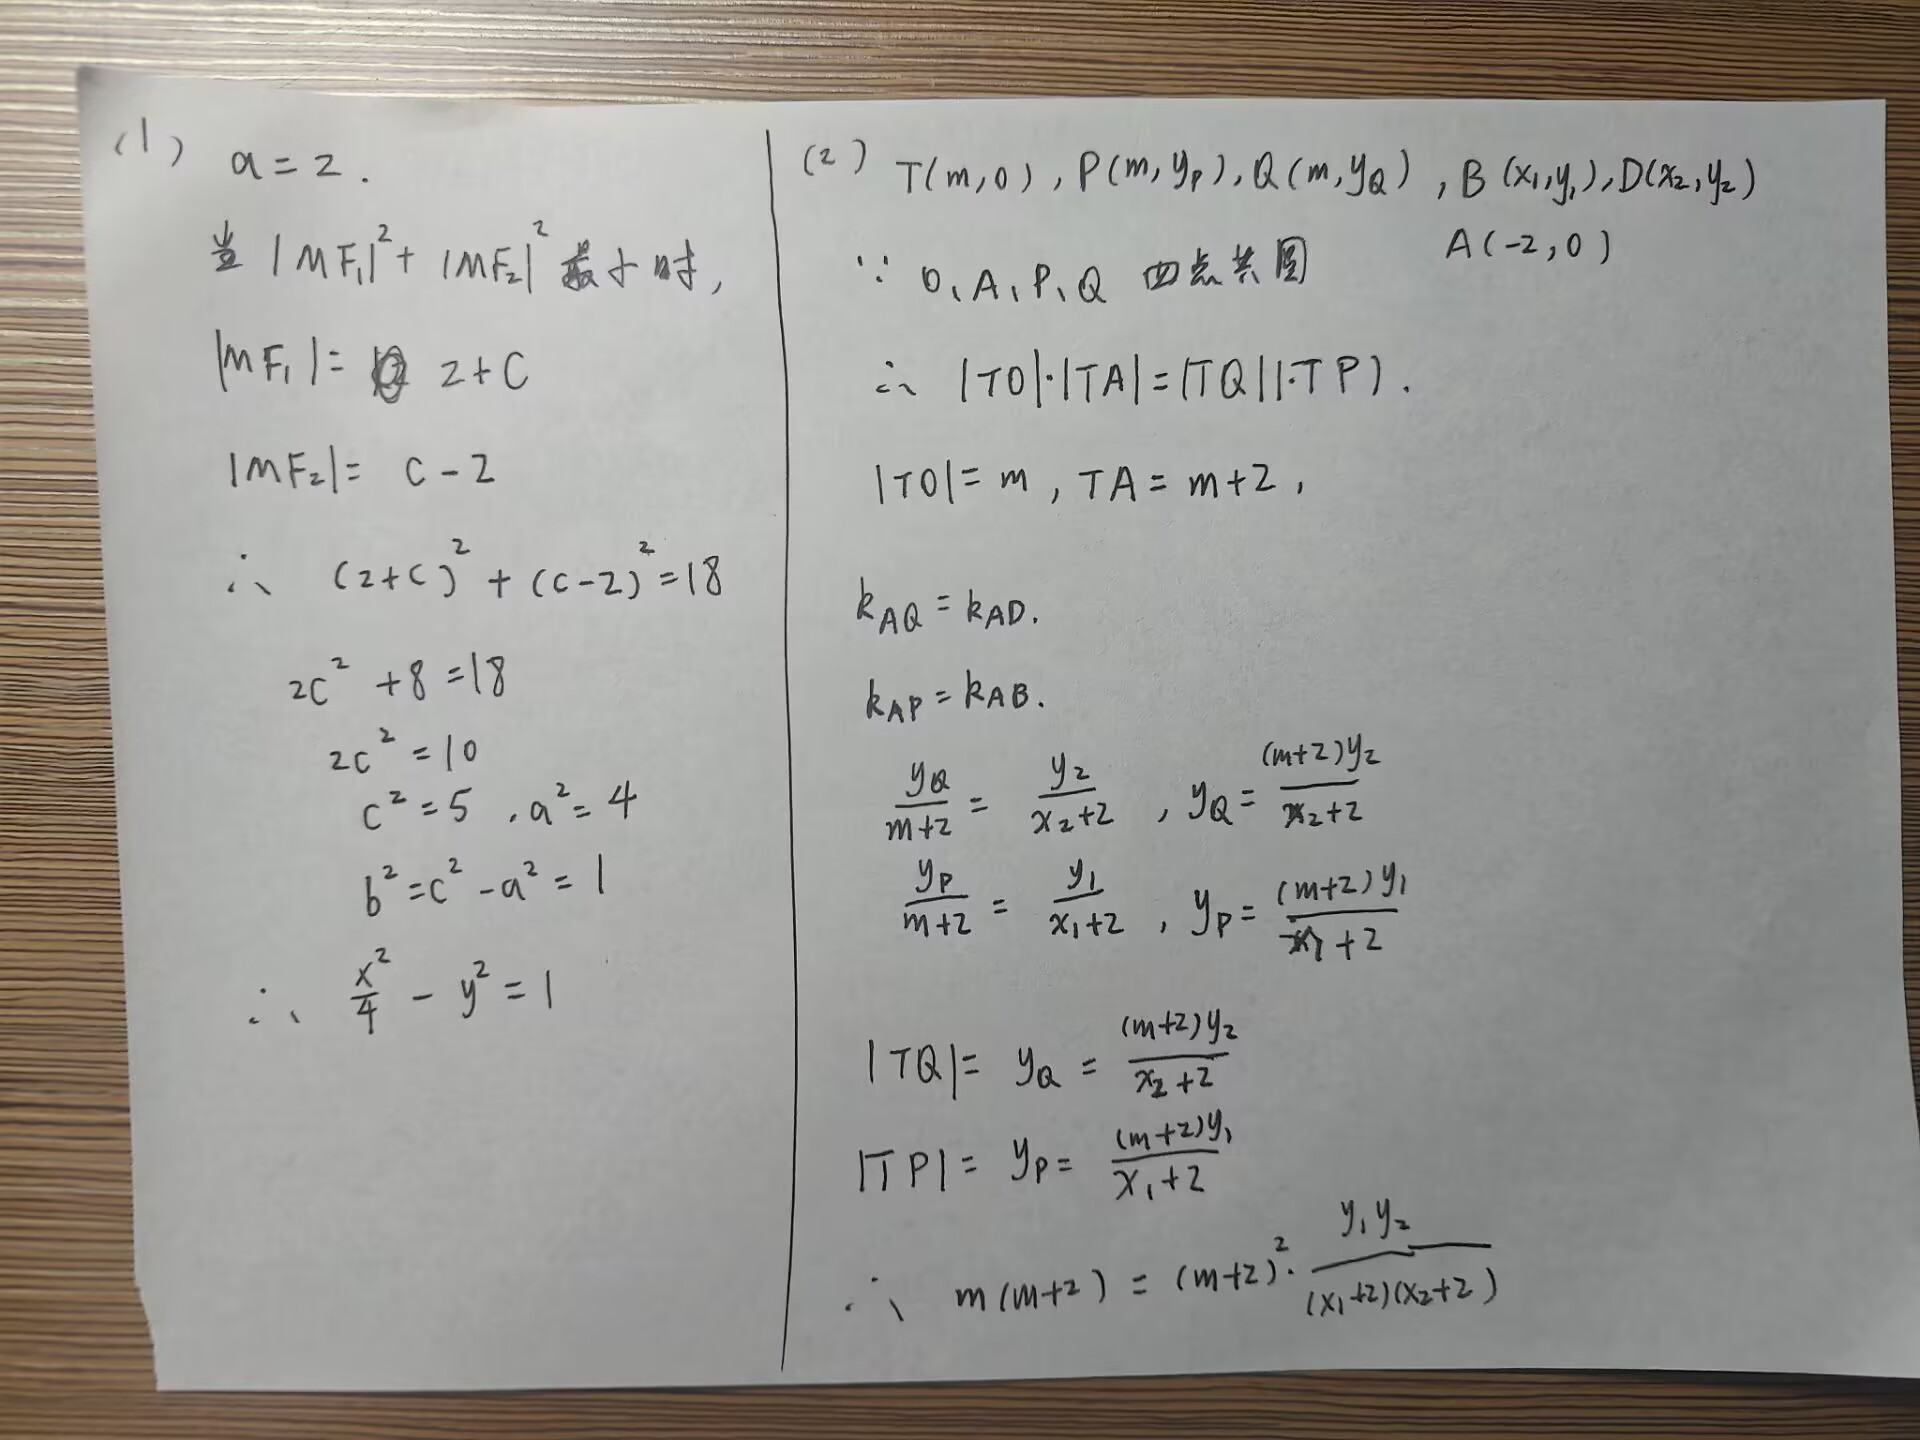 (1) a = 2.
当 |MF₁|² + |MF₂|² 最小时,
|MF₁| = 2+c
|MF₂| = c-2
∴ (2+c)² + (c-2)² = 18
2c² + 8 = 18
2c² = 10
c² = 5 , a² = 4
b² = c² - a² = 1
∴ x²/4 - y² = 1
(2) T(m,0), P(m,y_P), Q(m,y_Q), B(x₁,y₁), D(x₂,y₂)
A(-2,0)
∵ O、A、P、Q 四点共圆
∴ |TO|·|TA| = |TQ||·TP|.
|TO| = m , TA = m+2 ,
k_AQ = k_AD.
k_AP = k_AB.
y_Q/(m+2) = y₂/(x₂+2) , y_Q = (m+2)y₂/(x₂+2)
y_P/(m+2) = y₁/(x₁+2) , y_P = (m+2)y₁/(x₁+2)
|TQ| = y_Q = (m+2)y₂/(x₂+2)
|TP| = y_P = (m+2)y₁/(x₁+2)
∴ m(m+2) = (m+2)² · y₁y₂/((x₁+2)(x₂+2))